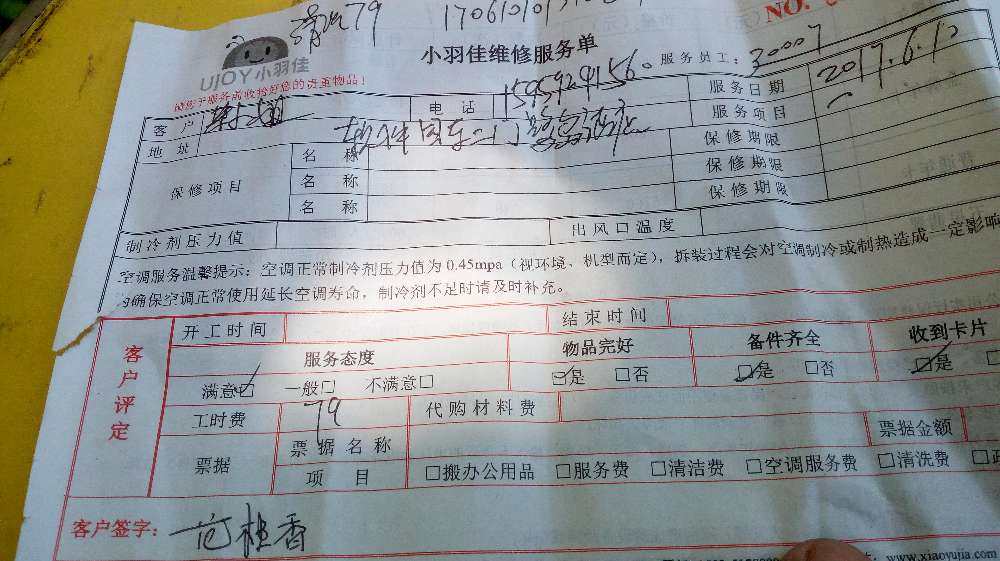 79
NO.
UJOY小羽佳
小羽佳维修服务单
服务员工: 30007
请您于服务前收拾好您的贵重物品!
客户 电话 15959294156 服务日期 2017.6.10
地址 服务项目
保修项目 名称 保修期限
名称 保修期限
名称 保修期限
制冷剂压力值 出风口温度
空调服务温馨提示: 空调正常制冷剂压力值为0.45mpa(视环境、机型而定), 拆装过程会对空调制冷或制热造成一定影响
为确保空调正常使用延长空调寿命, 制冷剂不足时请及时补充。
客户评定
开工时间 结束时间
服务态度 物品完好 备件齐全 收到卡片
满意☑ 一般□ 不满意□ ☑是 □否 ☑是 □否 ☑是
工时费 79 代购材料费
票据 票据名称 票据金额
项目 □搬办公用品 □服务费 □清洁费 □空调服务费 □清洗费
客户签字: 范桂香
www.xiaoyujia.com